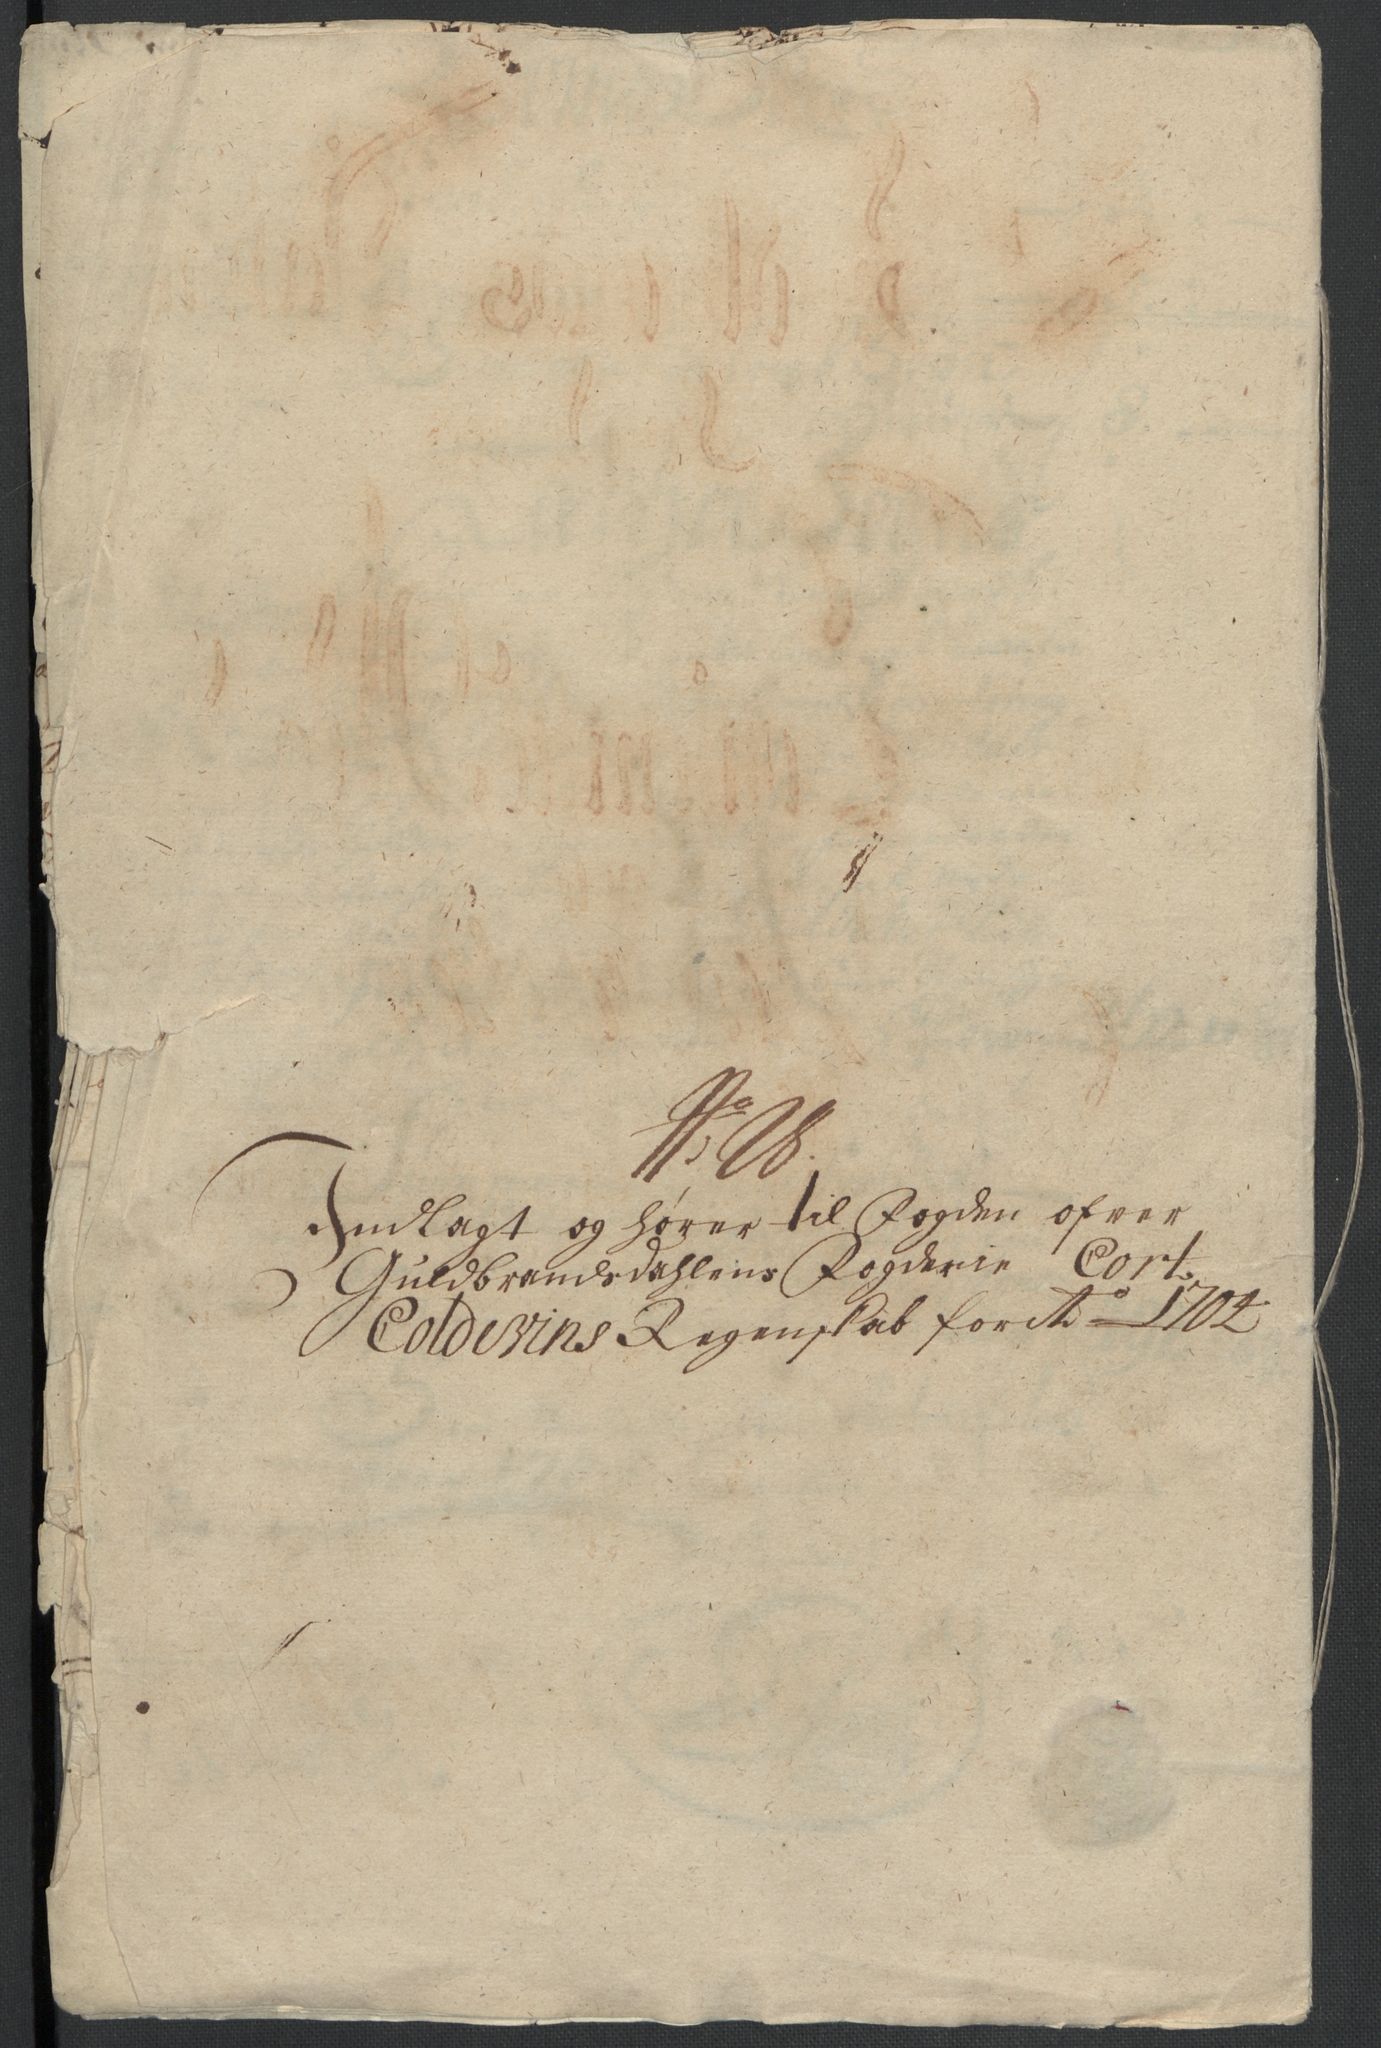 No
Indlagt og hører til Fogden ofver
Guldbrandsdahlens Fogderie Cort
Coldevins Regenskab for Ao 1704